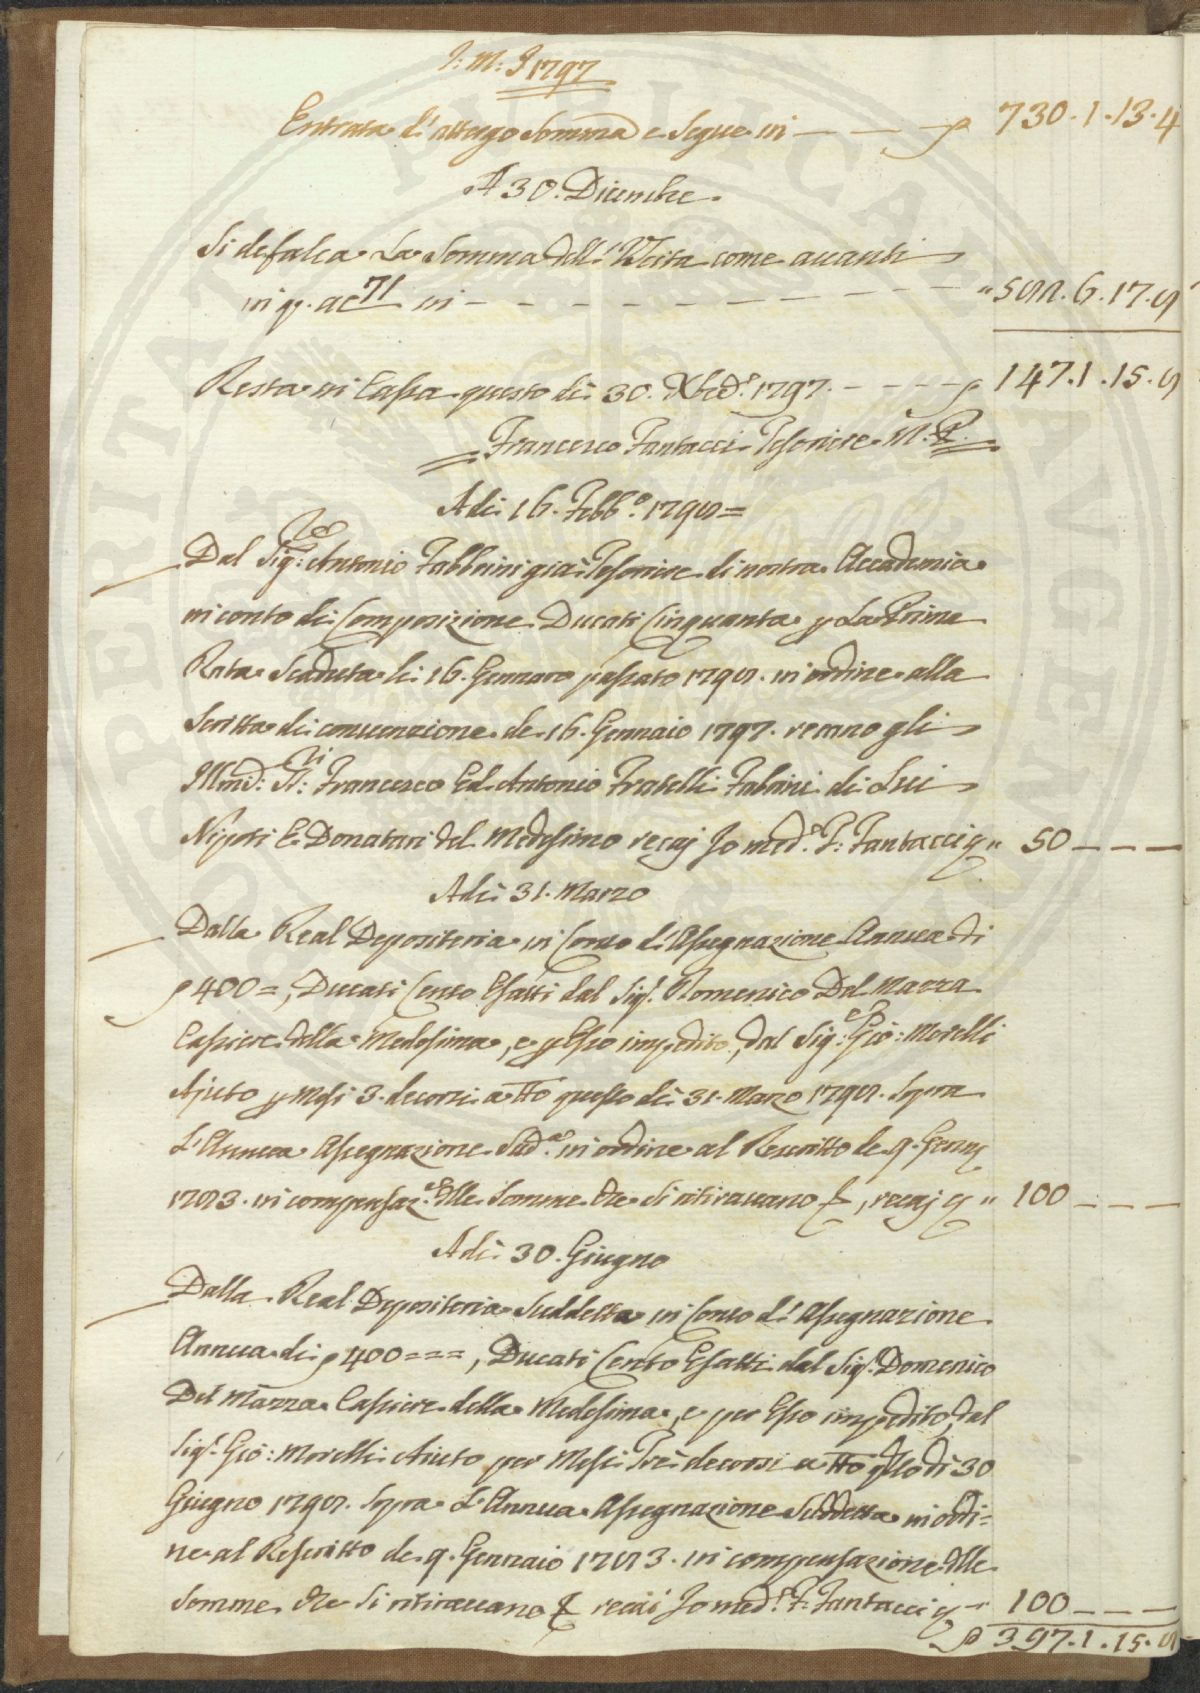 J: M: J 1797
Entrata di attergo Somma e Segue in — — — — ƿ 730.1.13.4
A 30. Dicembre.
Si defalca La Somma dell'Uscita come avanti
in q. a c 71 in — — — — — — — — — " 582.6.17.8
Resta in Cassa questo dì 30. Xbre 1797. — — — — ƿ 147.1.15.8
Francesco Fantacci Tesoriere M. P.
A dì 16. Febb.o 1798=
Dal Sig.re Antonio Fabbrini già Tesoriere di nostra Accademia
in conto di Composizione Ducati Cinquanta p La Prima
Rata Scaduta li 16. Gennaro passato 1798. in ordine alla
Scritta di convenzione de 16. Gennaio 1797. verano gli
Illmi: SS.ri: Francesco Ed Antonio Fratelli Fabrini di Lui
Nipoti E Donatari del Medesimo recai Io med.o F: Fantacci q " 50 — — —
A dì 31. Marzo
Dalla Real Depositeria in Conto d'Assegnazione Annua di
ƿ 400=, Ducati Cento Esatti dal Sig.r Domenico Del Mazza
Cassiere della Medesima, e p Esso impedito, dal Sig.re Gio: Morelli
Ajuto p Mesi 3. decorsi a tto questo dì 31. Marzo 1798. Sopra
L'Annua Assegnazione Sud.a in ordine al Rescritto de 9. Genn
1783. in compensaz.ne delle Somme che Si ritiravano &, recai q " 100 — — —
A dì 30. Giugno
Dalla Real Depositeria Suddetta in Conto d'Assegnazione
Annua di ƿ 400===, Ducati Cento Esatti dal Sig.r Domenico
Del Mazza Cassiere della Medesima, e per Esso impedito, dal
Sig.r Gio: Morelli Aiuto per Mesi Tre decorsi a tto qsto dì 30
Giugno 1798. Sopra L'Annua Assegnazione Suddetta in ordi=
ne al Rescritto de 9. Gennaio 1783. in compensazione delle
Somme che Si ritiravano & recai Io med.o F: Fantacci q " 100 — — —
ƿ 397.1.15.8